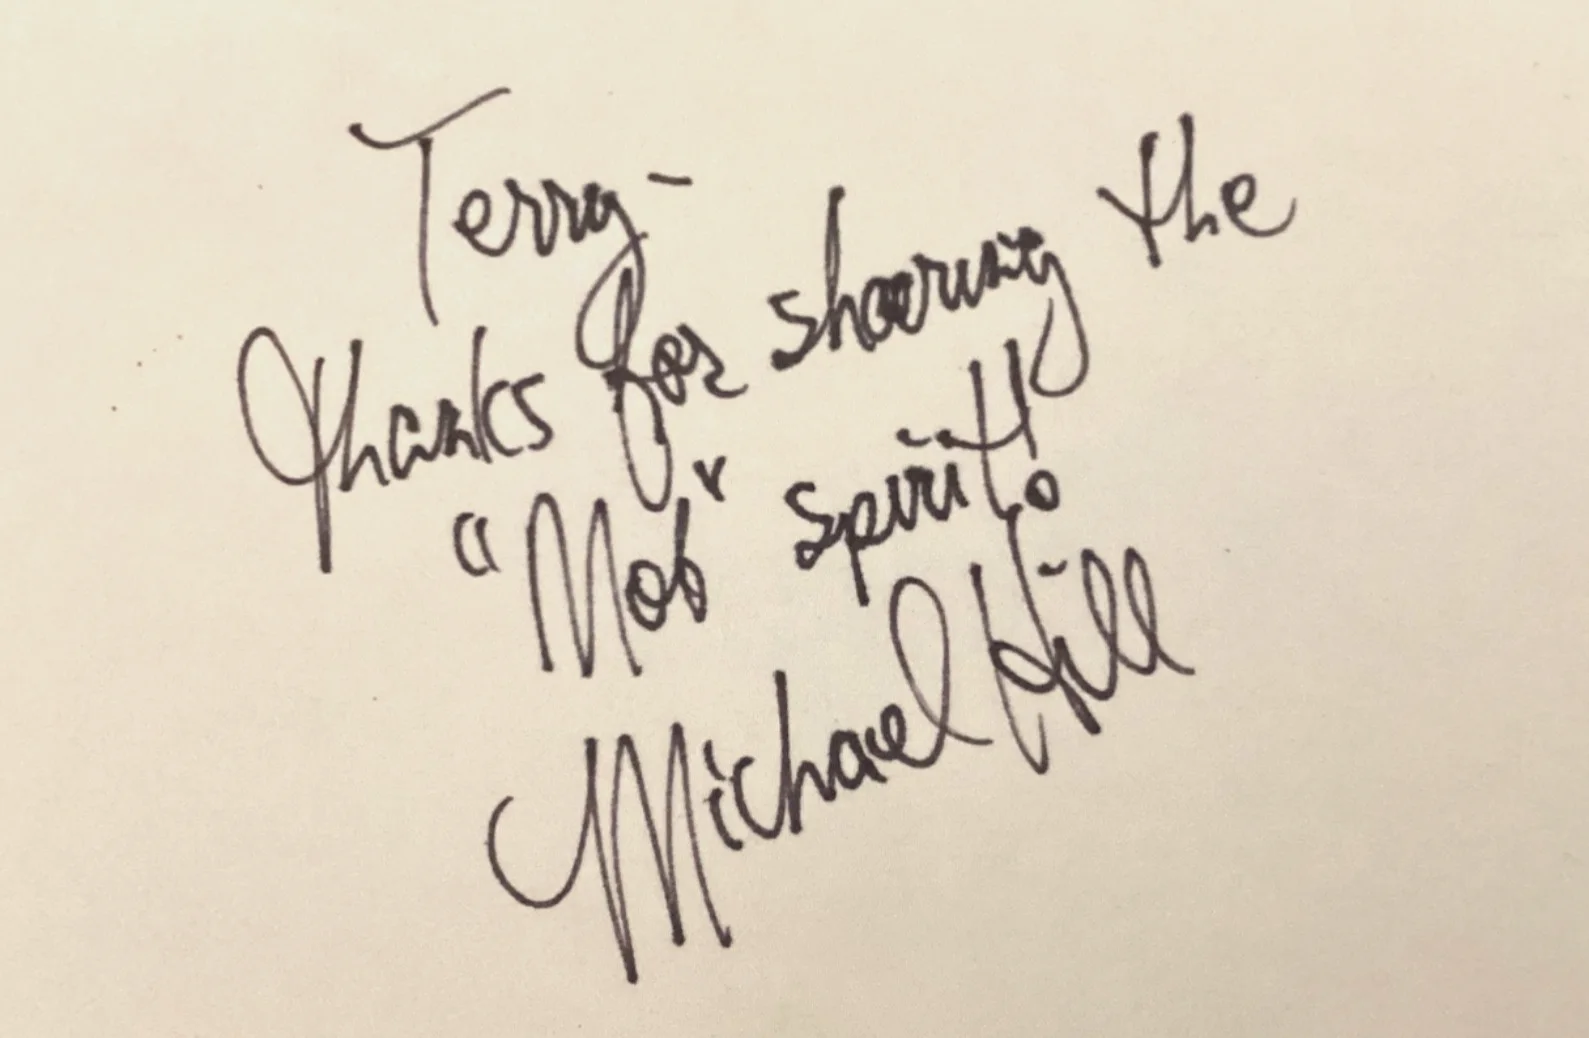 Terry -
Thanks for sharing the
"Mob" spirit.
Michael Hill